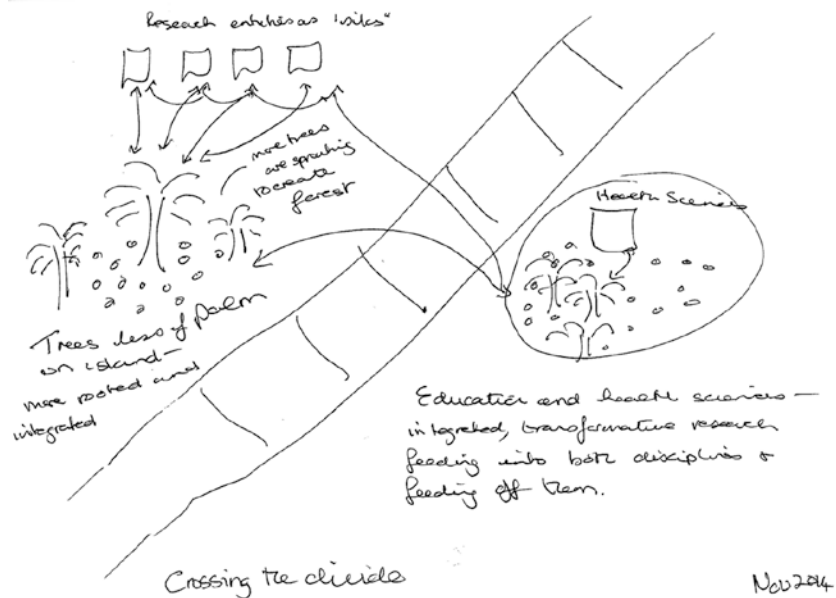 Research entities as "silos"
more trees
are sprouting
to create
forest
Health Sciences
Trees less of palm
on island –
more rooted and
integrated
Education and health sciences –
integrated, transformative research
feeding into both disciplines &
feeding off them.
Crossing the divide
Nov 2014